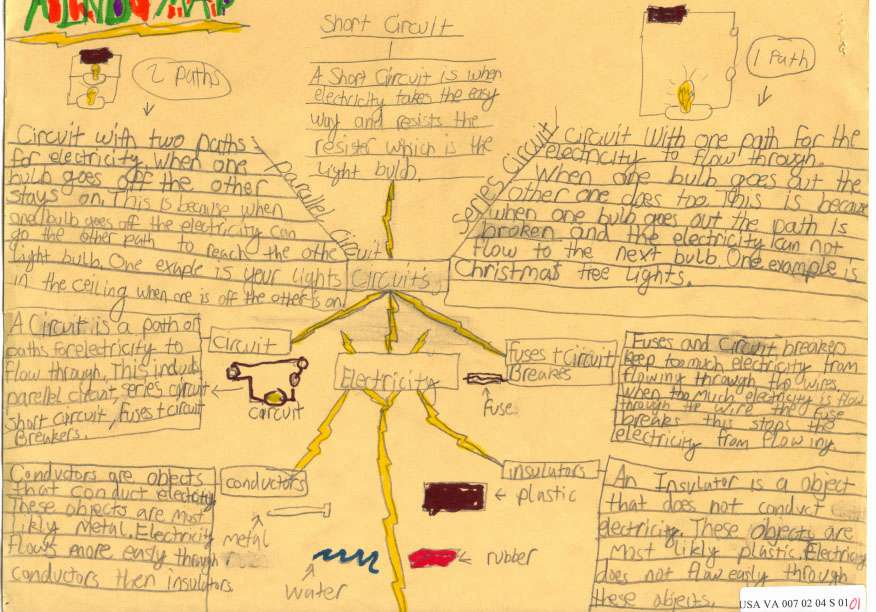 MIND MAP
Short Circuit
A Short Circuit is when
electricity takes the easy
way and resists the
resister which is the
light bulb.
2 Paths
1 Path
Circuit with two paths
for electricity. When one
bulb goes off the other
stays on. This is because when
one bulb goes off the electricity can
go the other path to reach the othe
light bulb. One exmple is your lights
in the ceiling when one is off the other is on.
parallel circuit
Series Circuit
Circuit With one path for the
electrcity to flow through.
When one bulb goes out the
other one does too. This is because
when one bulb goes out the path is
broken and the electricity can not
flow to the next bulb. One example is
Christmas tree lights.
Circuits
A Circuit is a path or
paths for electricity to
flow through. This includ
parallel circuit, series circuit
short circuit, fuses + circuit
Breakers.
Circuit
circuit
Electricity
Fuses + Circuit
Breakes
fuse
Fuses and Circuit breakers
keep too much electricity from
flowing through the wires.
when too much electricity is flow
through the wire the fuse
breaks this stops the
electricity from flowing
Conductors are objects
that conduct electricity
These objects are most
likly metal. Electricity
flows more easily through
conductors then insulators.
conductors
metal
water
insulators
plastic
rubber
An Insulator is a object
that does not conduct
electricity. These objects are
most likly plastic. Electricity
does not flow easily through
these objects.
USA VA 007 02 04 S 01 01